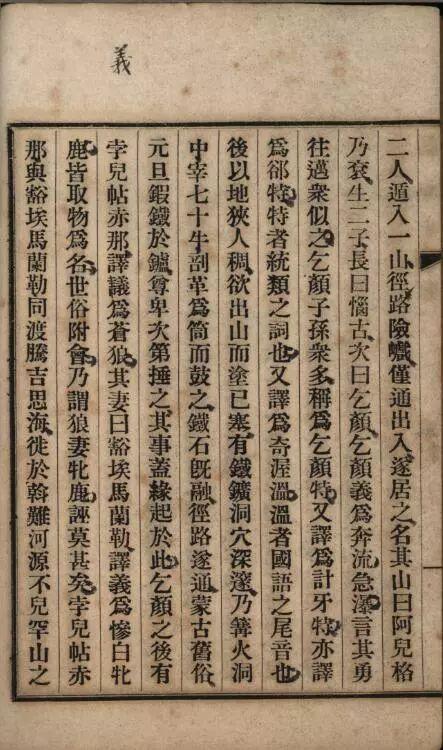 義
二人遁入一山徑路險巇僅通出入遂居之名其山曰阿兒格
乃袞生二子長曰惱古次曰乞顏乞顏義爲奔流急瀑言其勇
往邁衆似之乞顏子孫衆多稱爲乞顏特又譯爲計牙特亦譯
爲卻特特者統類之詞也又譯爲奇渥溫溫者國語之尾音也
後以地狹人稠欲出山而塗已塞有鐵鑛洞穴深邃乃篝火洞
中宰七十牛剖革爲筒而鼓之鐵石旣融徑路遂通蒙古舊俗
元旦鍜鐵於鑪尊卑次第捶之其事蓋緣起於此乞顏之後有
孛兒帖赤那譯議爲蒼狼其妻曰豁埃馬蘭勒譯義爲慘白牝
鹿皆取物爲名世俗附會乃謂狼妻牝鹿誣莫甚矣孛兒帖赤
那與豁埃馬蘭勒同渡騰吉思海徙於斡難河源不兒罕山之